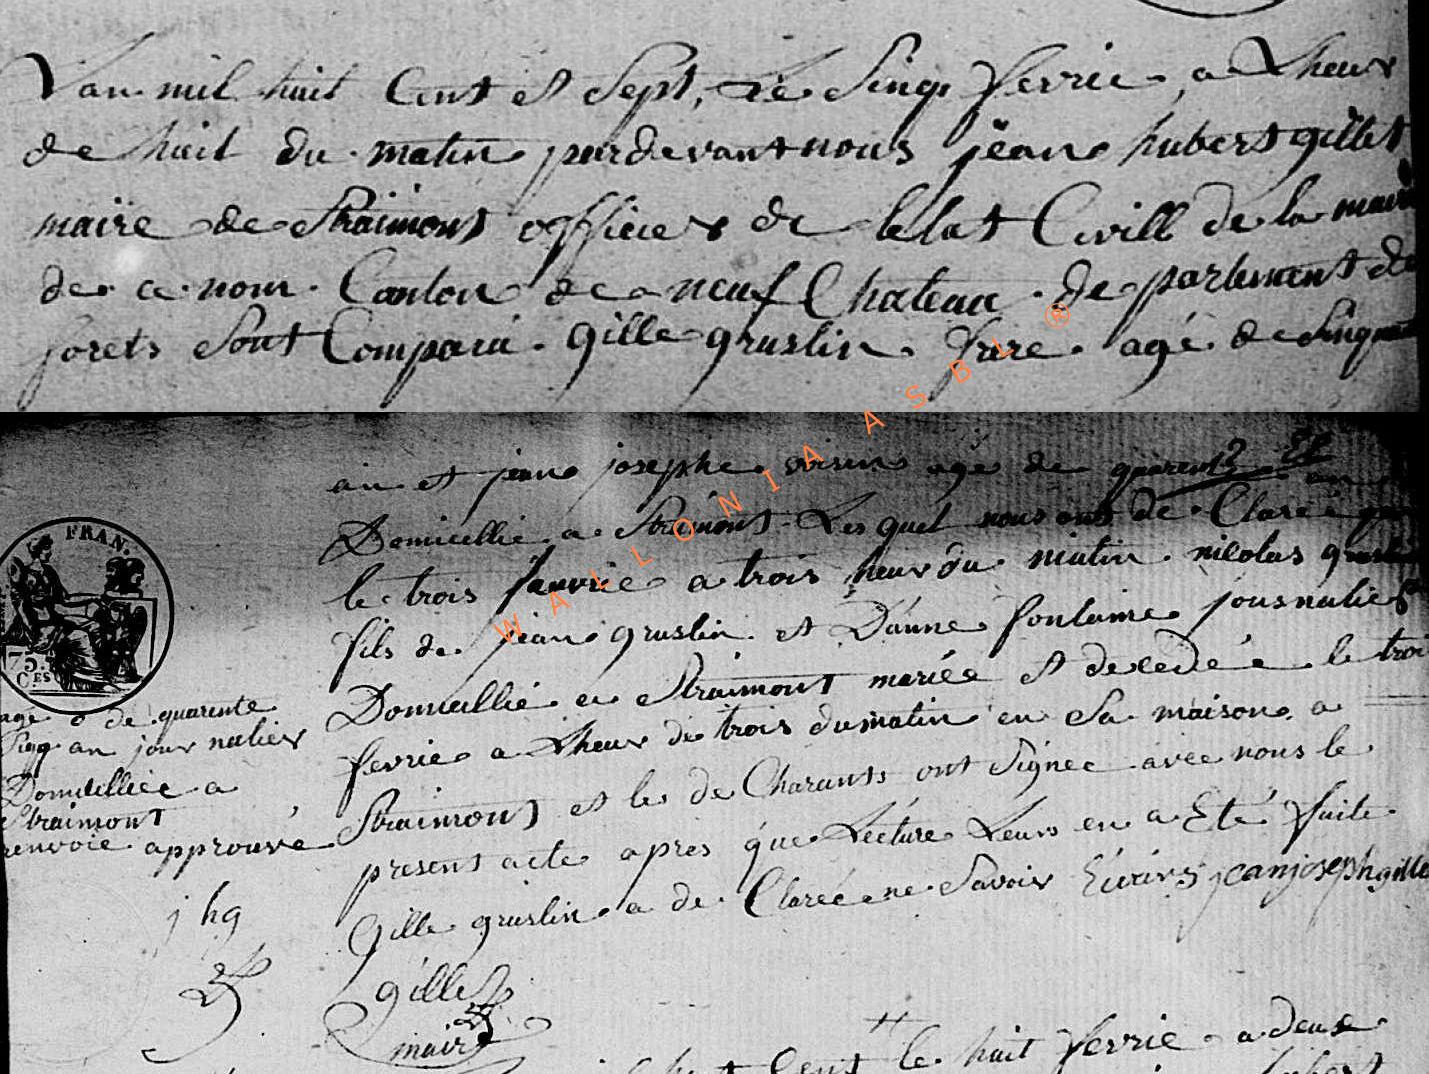 L'an mil huit Cent et Sept, Le Sinq fevrie a Lheur
de huit du matin pardevant nous jean hubert gillet
maire de Straimont officier de letat Civill de la mairi
de ce nom Canton de neuf Chateau de partement de
forets Sont Comparu Gille gruslin frere agé de Sinquant
an et jean josephe agé de quarente
Domicellié a Straimont Lesquel nous ont de Claré que
le trois a trois heur du matin nicolas gruslin
fils de jean gruslin et D'anne fontaine journalier
Domicellié a Straimont mariée et decedée le troi
fevrie a Lheur de trois du matin en Sa maison a
Straimont et les de Charants ont Signée avec nous le
present acte apres que Lecture Leurs en a Eté faite
Gille gruslin a de Clareé ne Savoir Ecrire jeanjosephgille
gillet
maire
age de quarente
an jour nalier
Domicelliée a
Straimont
renvoie approuvé
j h g
FRAN.
75.
C.ES
le huit fevrie a deux
WALLONIA ASBL ®